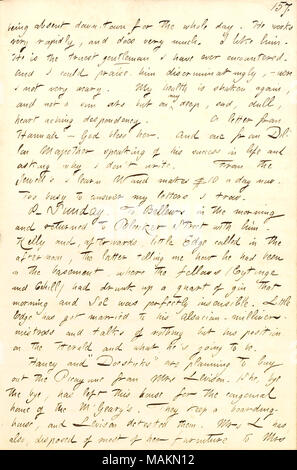 157.
being absent down-town for the whole day. He works
very rapidly, and does very much. I like him.
He is the truest gentleman I have ever encountered.
And I could praise him discriminatingly, were
I not very weary. My health is shaken again,
and not a sin ats but any deep, sad, dull,
heart aching despondency. A letter from
Hannah — God bless her. And one from Dil-
lon Mapother speaking of his success in life and
asking why I don't write. From the
Jewells I learn W and makes $10 a day now.
Too busy to answer my letters I trow.
2. Sunday. To Bellew's in the morning
and returned to Bleecker Street with him.
Kelly and, afterwards, little Edge called in the
afternoon, the latter telling me how he has been
in the basement, where the fellows (Eytinge
and Cahill) had drunk up a quart of gin that
morning and Sol was perfectly insensible. Little
Edge has got married to his alsacian-milliner-
mistress and talks of nothing but his position
on the Herald and what he's going to be.
Haney and "Doesticks" are planning to buy
out the Picayune from Mrs Levison. She, by
the bye, has left this house for the congenial
home of the McGeary's. They keep a boarding-
house, and Levison detested them. Mrs L has
also, disposed of most of her furniture to Mrs
alamy
Image ID: MAKN12
www.alamy.com